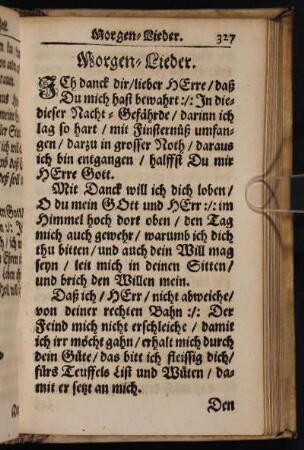 Morgen-Lieder. 327
Morgen-Lieder.
ICh danck dir/lieber HErre/daß
Du mich hast bewahrt :/: In die-
dieser Nacht-Gefährde/darinn ich
lag so hart/mit Finsternüß umfan-
gen/darzu in grosser Noth/daraus
ich bin entgangen/halffst Du mir
HErre Gott.
Mit Danck will ich dich loben/
O du mein GOtt und HErr :/: im
Himmel hoch dort oben/den Tag
mich auch gewehr/warumb ich dich
thu bitten/und auch dein Will mag
seyn/leit mich in deinen Sitten/
und brich den Willen mein.
Daß ich/HErr/nicht abweiche/
von deiner rechten Bahn :/: Der
Feind mich nicht erschleiche/damit
ich irr möcht gahn/erhalt mich durch
dein Güte/das bitt ich fleissig dich/
fürs Teuffels List und Wüten/da-
mit er setzt an mich.
Den